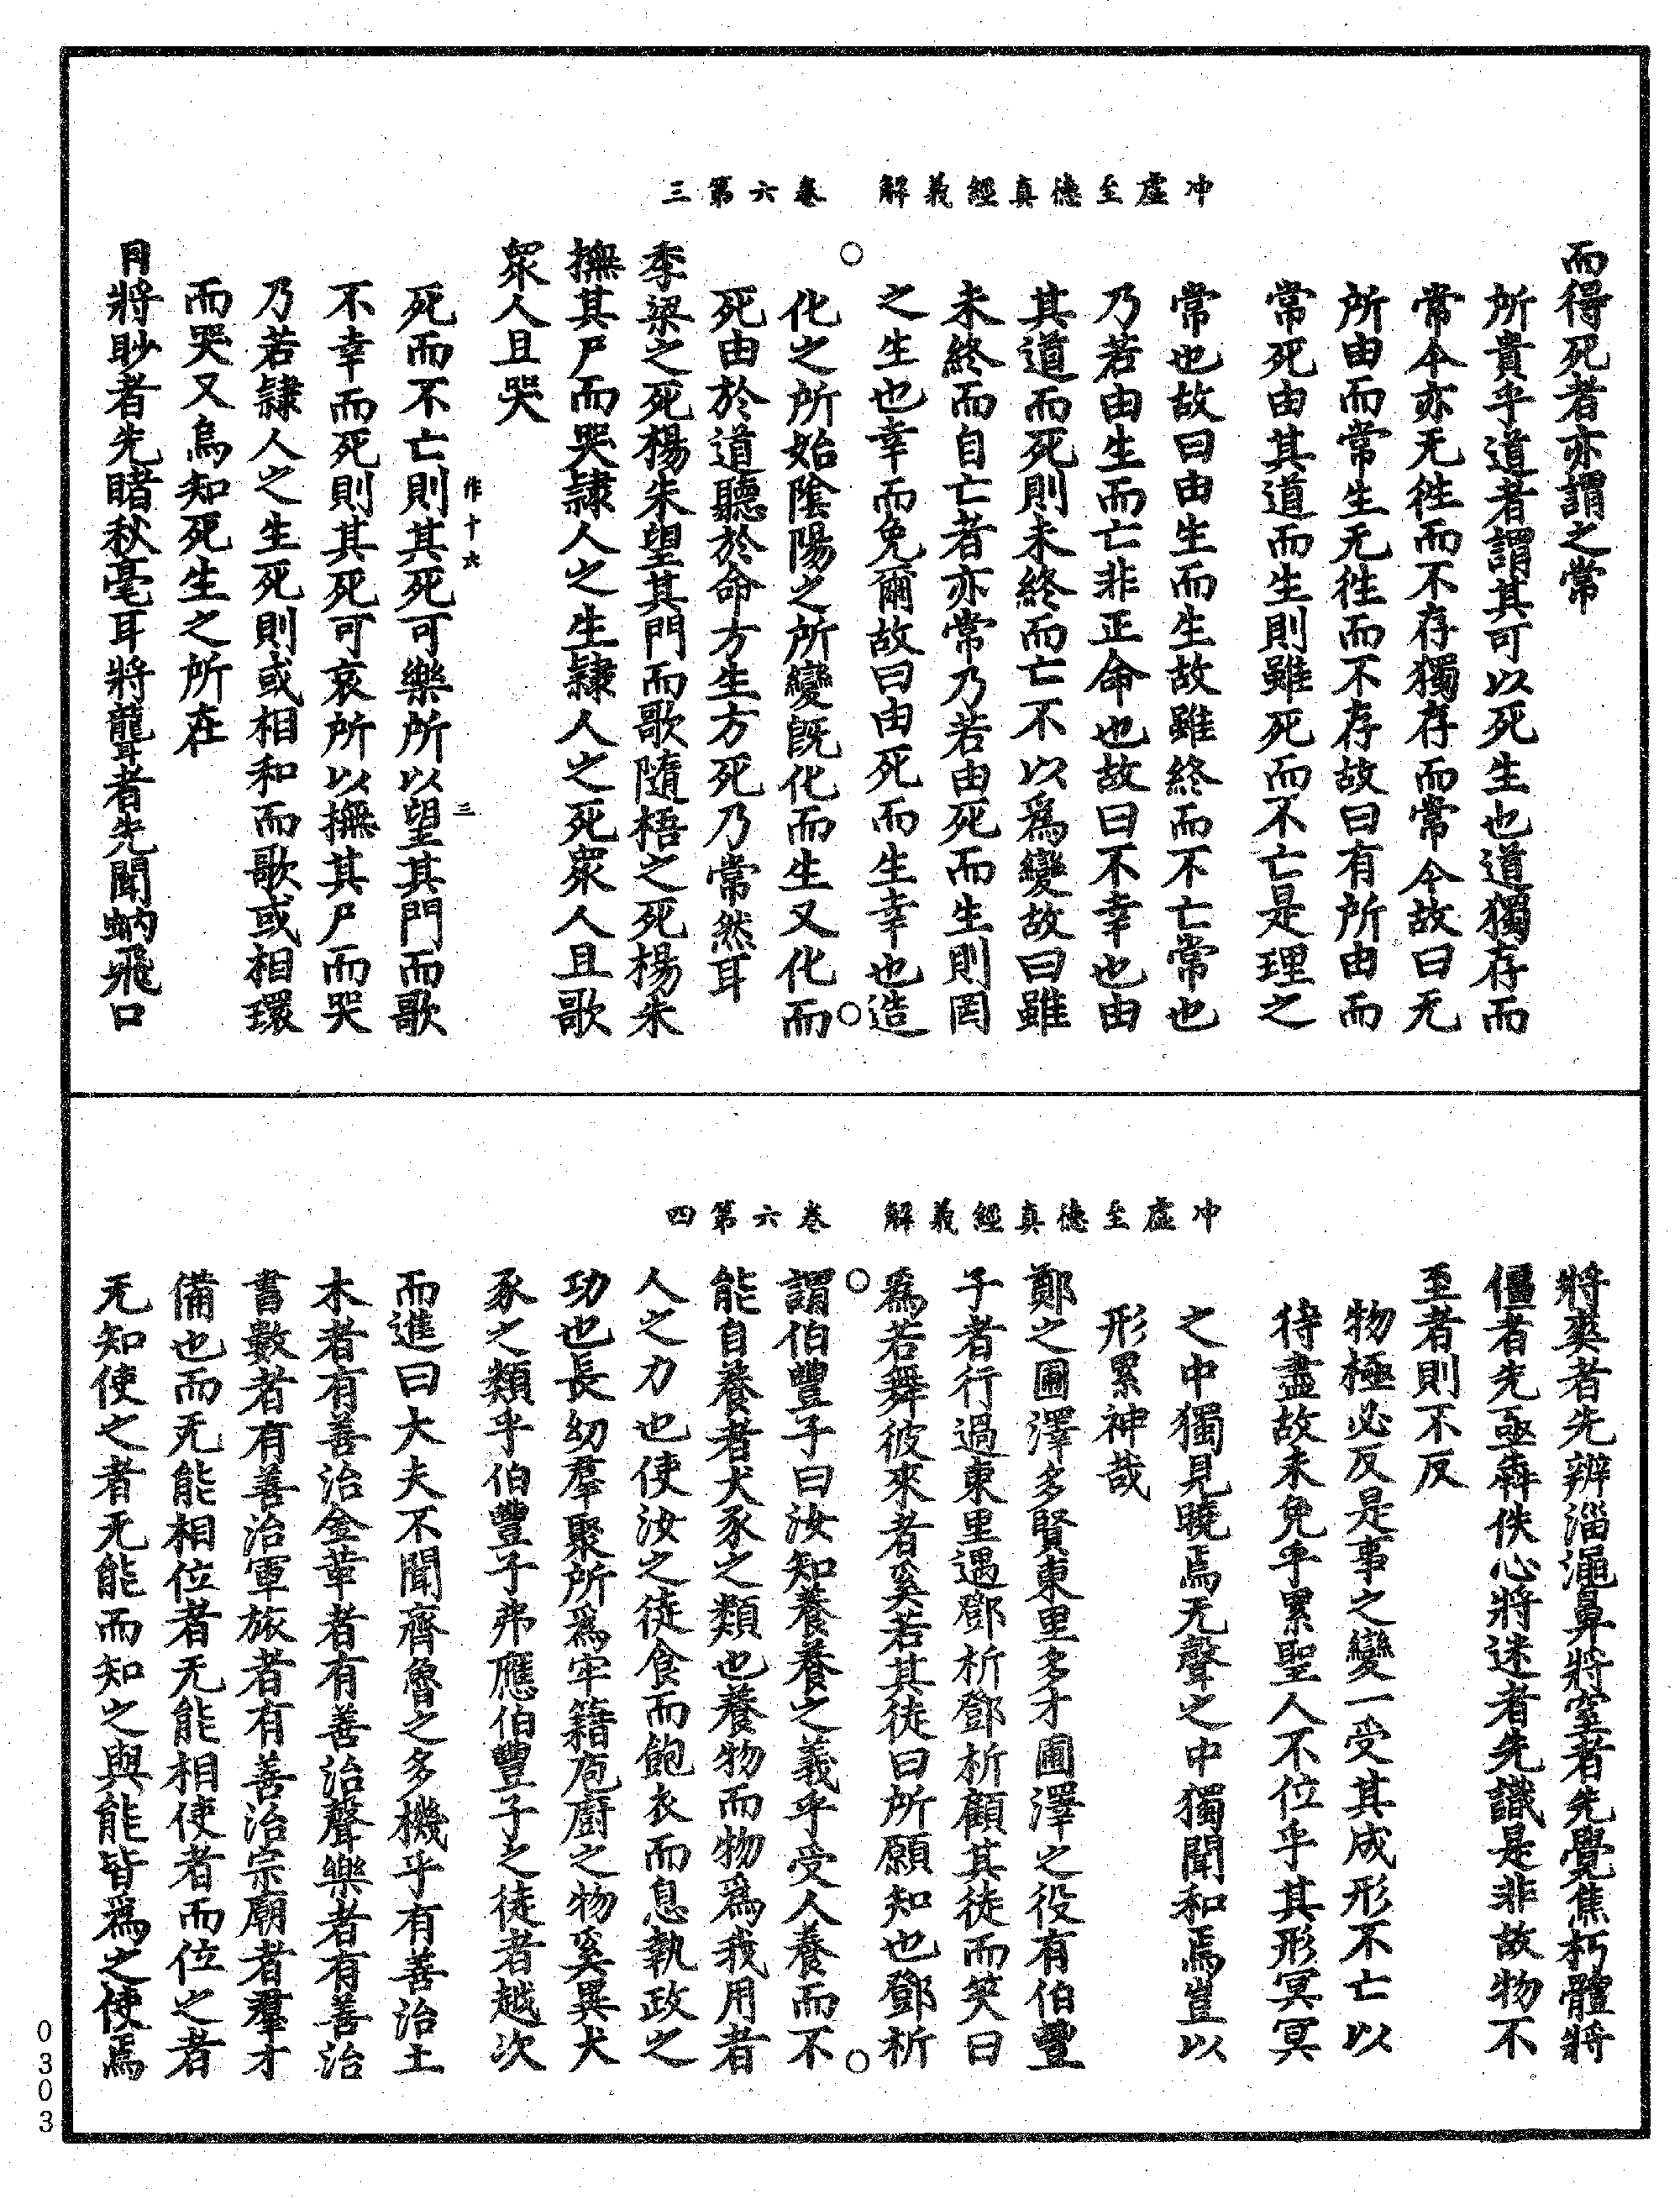 冲虛至德真經義解　卷六第三
而得死者亦謂之常
所貴乎道者謂其可以死生也道獨存而
常今亦无徃而不存獨存而常令故曰无
所由而常生无徃而不存故曰有所由而
常死由其道而生則雖死而不亡是理之
常也故曰由生而生故雖終而不亡常也
乃若由生而亡非正命也故曰不幸也由
其道而死則未終而亡不以爲變故曰雖
未終而自亡者亦常乃若由死而生則罔
之生也幸而免爾故曰由死而生幸也造
化之所始陰陽之所變旣化而生又化而
死由於道聽於命方生方死乃常然耳
季梁之死楊朱望其門而歌隨梧之死楊朱
撫其尸而哭隸人之生隸人之死衆人且歌
衆人且哭
作十六　三
死而不亡則其死可樂所以望其門而歌
不幸而死則其死可哀所以撫其尸而哭
乃若隸人之生死則或相和而歌或相環
而哭又烏知死生之所在
目將眇者先睹秋毫耳將聾者先聞蚋飛口
冲虛至德真經義解　卷六第四
將爽者先辨淄澠鼻將窒者先覺焦朽體將
僵者先亟犇佚心將迷者先識是非故物不
至者則不反
物極必反是事之變一受其成形不亡以
待盡故未免乎累聖人不位乎其形冥冥
之中獨見曉焉无聲之中獨聞和焉豈以
形累神哉
鄭之圃澤多賢東里多才圃澤之役有伯豐
子者行過東里遇鄧析鄧析顧其徒而笑曰
爲若舞彼來者奚若其徒曰所願知也鄧析
謂伯豐子曰汝知養養之義乎受人養而不
能自養者犬豕之類也養物而物爲我用者
人之力也使汝之徒食而飽衣而息執政之
功也長幼羣聚所爲牢籍庖廚之物奚異犬
豕之類乎伯豐子弗應伯豐子之徒者越次
而進曰大夫不聞齊魯之多機乎有善治土
木者有善治金革者有善治聲樂者有善治
書數者有善治軍旅者有善治宗廟者羣才
備也而无能相位者无能相使者而位之者
无知使之者无能而知之與能皆爲之使焉
0303